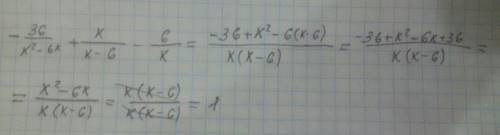 -36/(x²-6x) + x/(x-6) - 6/x = (-36+x²-6(x-6))/(x(x-6)) = (-36+x²-6x+36)/(x(x-6)) =
= (x²-6x)/(x(x-6)) = (x(x-6))/(x(x-6)) = 1